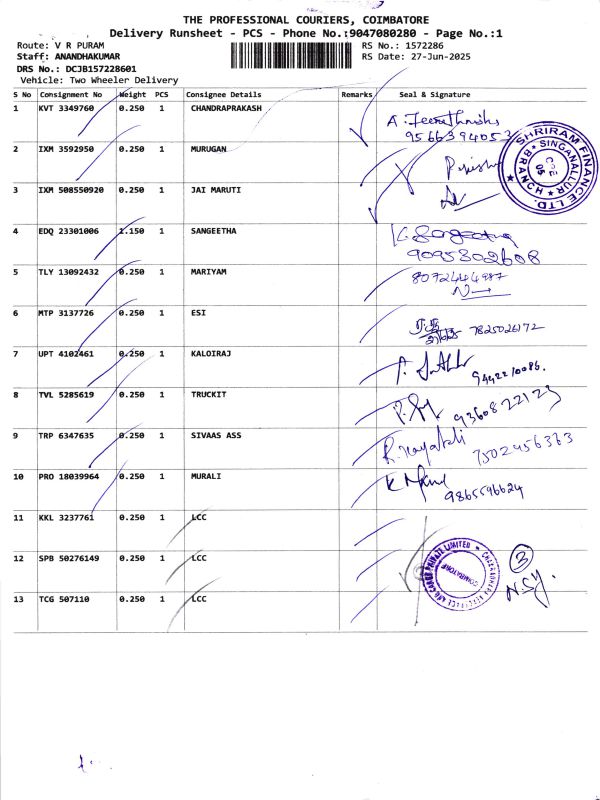 THE PROFESSIONAL COURIERS, COIMBATORE
Delivery Runsheet - PCS - Phone No.:9047080280 - Page No.:1
Route: V R PURAM RS No.: 1572286
Staff: ANANDHAKUMAR RS Date: 27-Jun-2025
DRS No.: DCJB157228601
Vehicle: Two Wheeler Delivery
S No Consignment No Weight PCS Consignee Details Remarks Seal & Signature
1 KVT 3349760 0.250 1 CHANDRAPRAKASH
9566394053
SHRIRAM FINANCE LTD.
SINGANALLUR
BRANCH
2 IXM 3592950 0.250 1 MURUGAN
3 IXM 508550920 0.250 1 JAI MARUTI
4 EDQ 23301006 1.150 1 SANGEETHA
K. Sangeetha
9095302608
5 TLY 13092432 0.250 1 MARIYAM
8072444987
6 MTP 3137726 0.250 1 ESI
7825026172
7 UPT 4102461 0.250 1 KALOIRAJ
9442210086.
8 TVL 5285619 0.250 1 TRUCKIT
9360822123
9 TRP 6347635 0.250 1 SIVAAS ASS
7502456363
10 PRO 18039964 0.250 1 MURALI
9865596624
11 KKL 3237761 0.250 1 LCC
12 SPB 50276149 0.250 1 LCC
3
13 TCG 507110 0.250 1 LCC